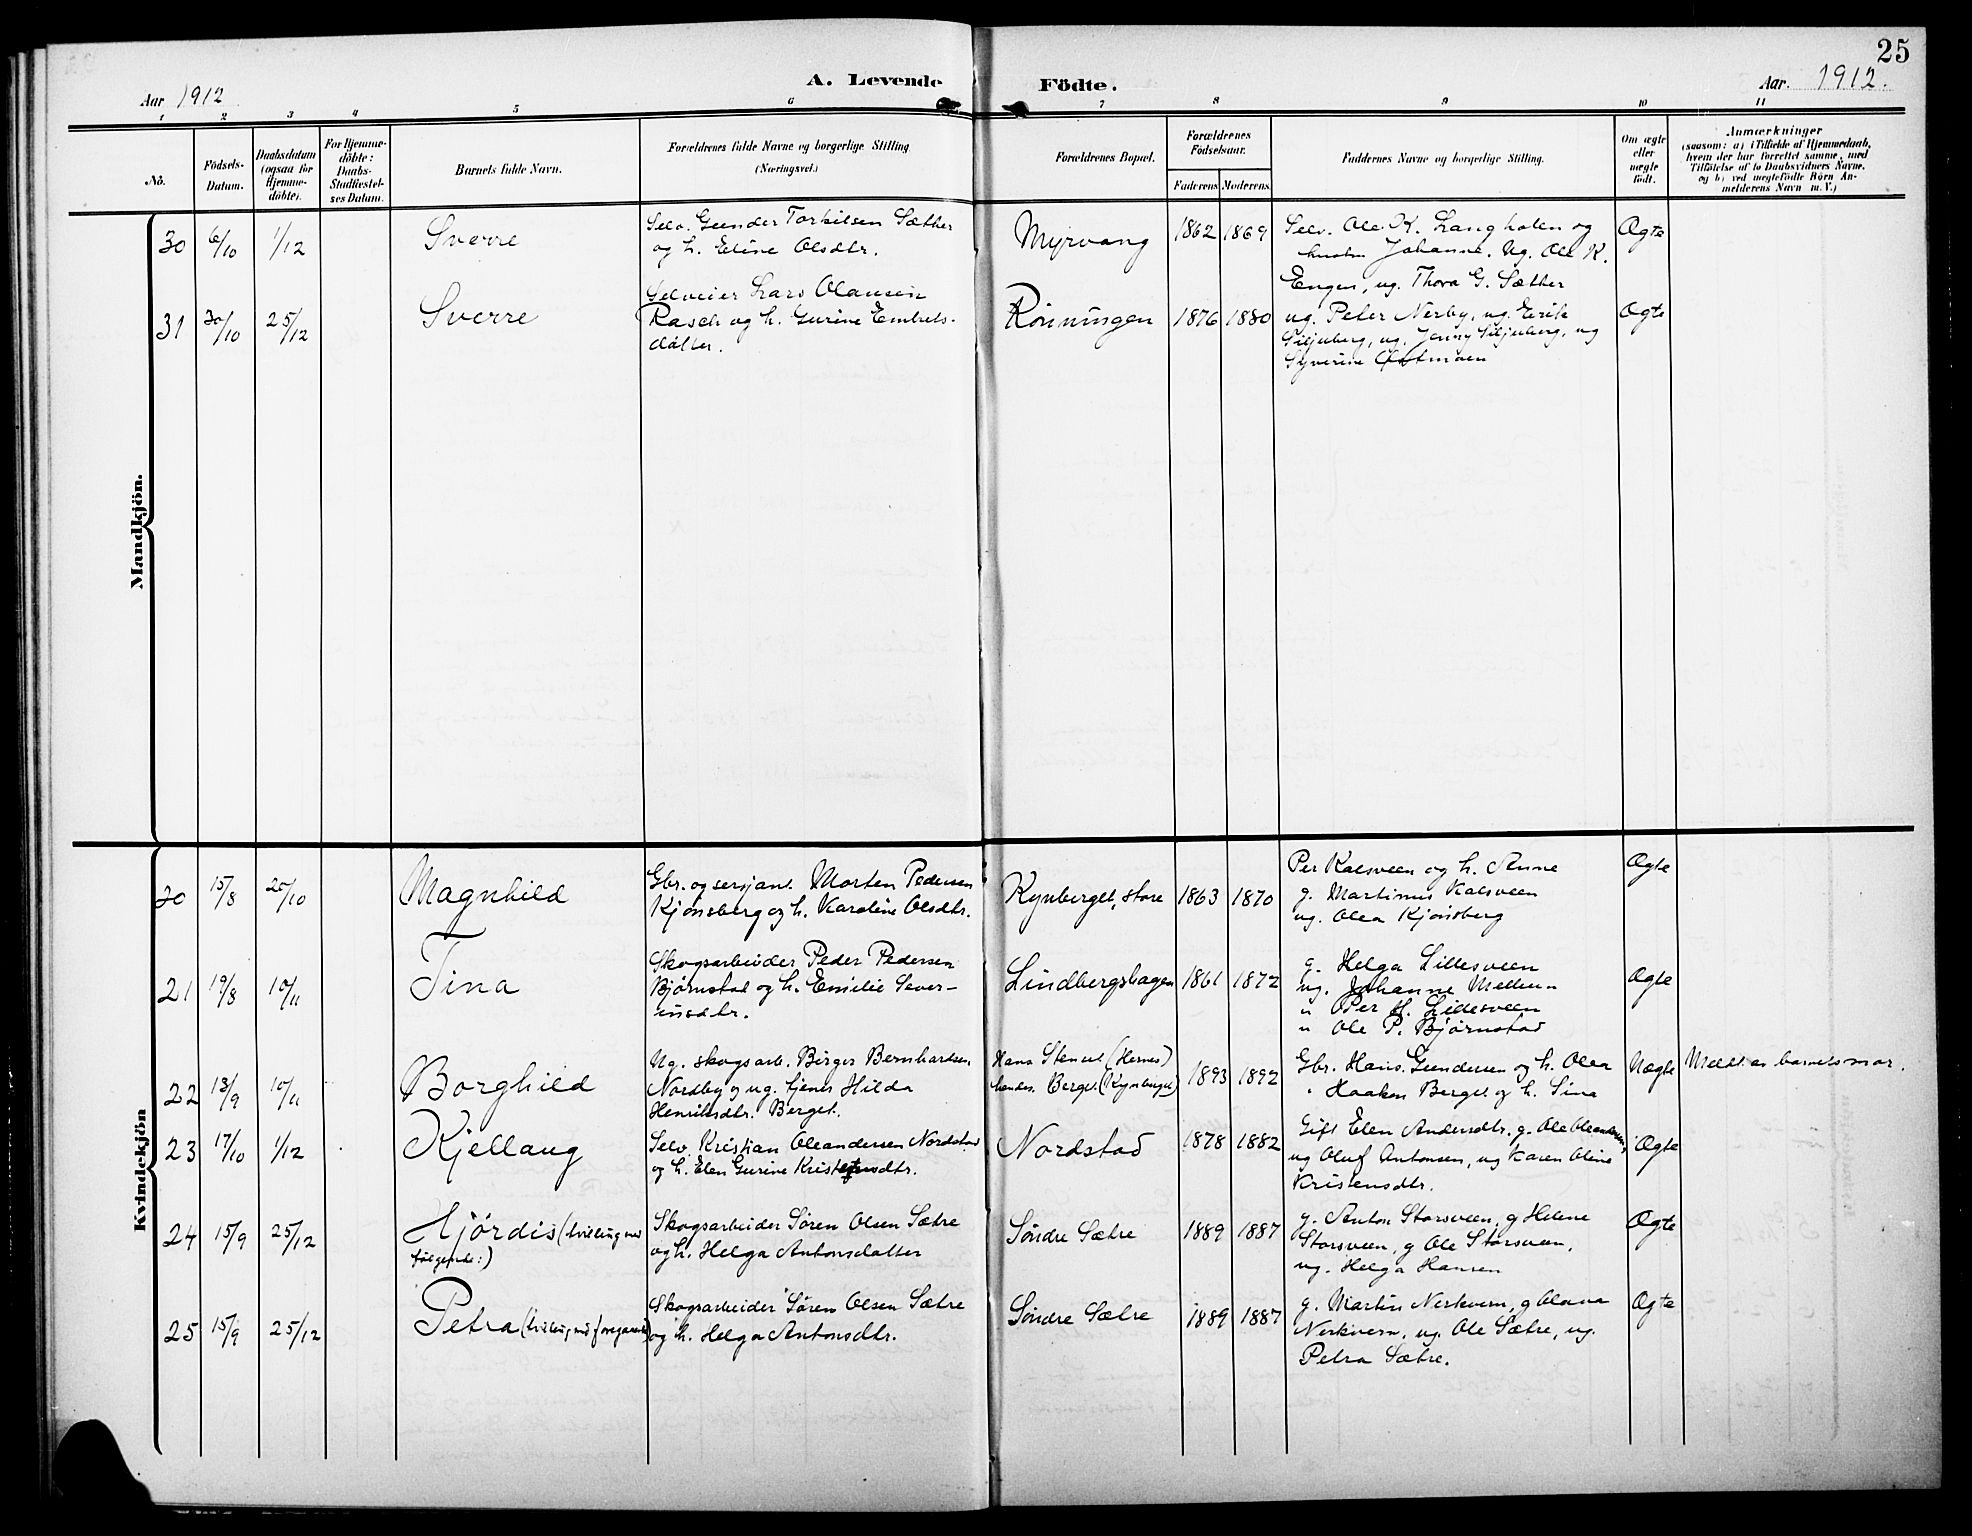 25
A. Levende Födte.
Aar 1912
Aar. 1912.
1 2 3 4 5 6 7 8 9 10 11
No.
Födsels-
Datum.
Daabsdatum
(ogsaa for
Hjemme-
döbte).
For Hjemme-
döbte:
Daabs-
Stadfæstel-
ses Datum.
Barnets fulde Navn.
Forældrenes fulde Navne og borgerlige Stilling
(Næringsvei.)
Forældrenes Bopæl.
Forældrenes
Födselsaar.
Faderens Moderens
Faddernes Navne og borgerlige Stilling.
Om ægte
eller
uægte
födt.
Anmærkninger
(saasom: a) i Tilfælde af Hjemmedaab,
hvem der har forrettet samme, med
Tilföielse af to Daabsvidners Navne,
og b) ved uægtefödte Börn An-
melderens Navn m. V.)
Mandkjön.
30 6/10 1/12 Sverre
Selv. Gunder Torkilsen Sæther
og h. Eline Olsdtr.
Myrvang 1862 1869
Selv. Ole K. Langholen og
hustru Johanne. Ug. Ole K.
Engen, ug. Thora G. Sæther
Ægte
31 30/10 25/12 Sverre
Selveier Lars Olausen
Rasch og h. Gurine Embets-
datter.
Rönningen 1876 1880
ug. Peter Nerby, ug. Erik
Siljuberg, ug. Jenny Siljuberg, ug
Syverine Østmoen
Ægte
Kvindekjön
20 15/8 20/10 Magnhild
Gbr. og sersjant Morten Pedersen
Kjönsberg og h. Karoline Olsdtr.
Kynberget, store 1863 1870
Per Kalsveen og h. Anne
g. Martinus Kalsveen
ug. Olea Kjönsberg
Ægte
21 19/8 10/11 Tina
Skogsarbeider Peder Pedersen
Björnstad og h. Emilie Sever-
insdtr.
Lindbergshagen 1861 1872
g. Helga Lillesveen
ug. Johanne Mellum
" Per H. Lillesveen
" Ole P. Björnstad
Ægte
22 13/9 10/11 Borghild
Ug. skogsarb. Birger Bernhardsen
Nordby og ug. tjener Hilda
Henriksdtr. Berget.
Hans Stenset (Hernes)
hendes. Berget (Kynberget) 1893 1892
Gbr. Hans Gundersen og h. Olea
" Haakon Berget og h. Sina
Uægte
Meldt av barnets mor.
23 17/10 1/12 Kjellaug
Selv. Kristian Oleandersen Nordstad
og h. Elen Gurine Kristensdtr.
Nordstad 1878 1882
Gift Elen Andersdtr. g. Ole Oleandersen,
ug Oluf Antonsen, ug Karen Oline
Kristensdtr.
Ægte
24 15/9 25/12 Hjördis (tvilling med
følgende:)
Skogsarbeider Sören Olsen Sætre
og h. Helga Antonsdatter
Söndre Sætre 1889 1887
g. Anton Storsveen, g Helene
Storsveen, g Ole Storsveen,
ug. Helga Hansen
Ægte
25 15/9 25/12 Petra (tvilling med foregaaende)
Skogsarbeider Sören Olsen Sætre
og h. Helga Antonsdtr.
Söndre Sætre 1889 1887
g. Martin Nerkvern, g Olava
Nerkvern, ug. Ole Sætre, ug.
Petra Sætre.
Ægte